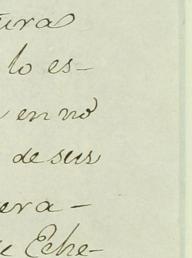 tura
lo es-
en no
de sus
era-
Eche-